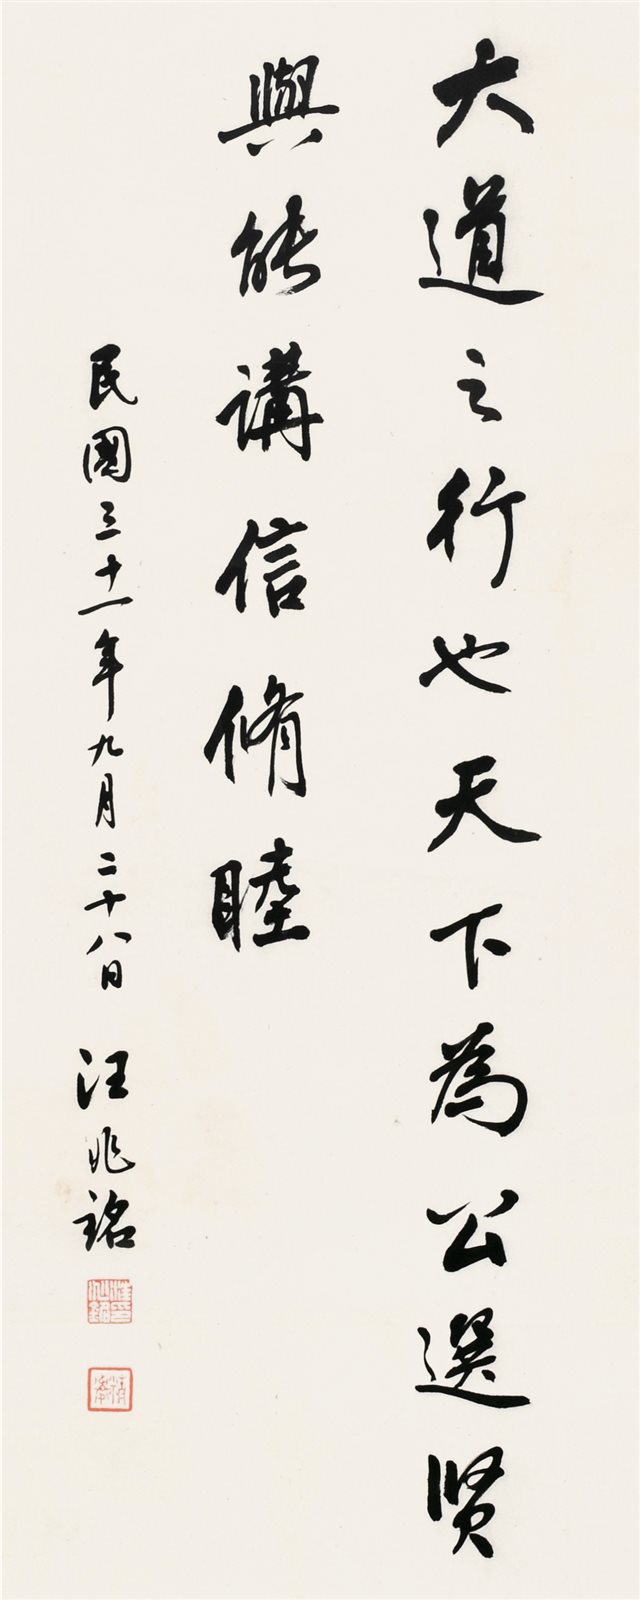 大道之行也天下為公選賢
與能講信脩睦
民國三十一年九月二十八日 汪兆銘
汪兆銘印
精衛